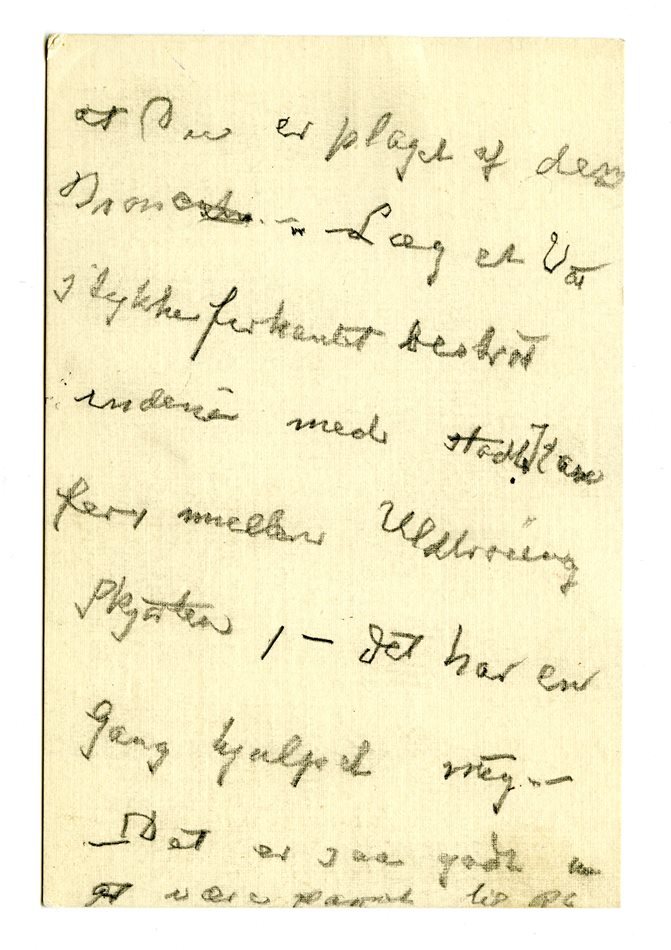 at Du er plaget af den
Læg et Vat
stykke firkantet bestrøt
indeni med
fers mellem Uldtrøie og
Skjorten, – det har en
Gang hjulpet mig. –
– Det er saa godt
at være